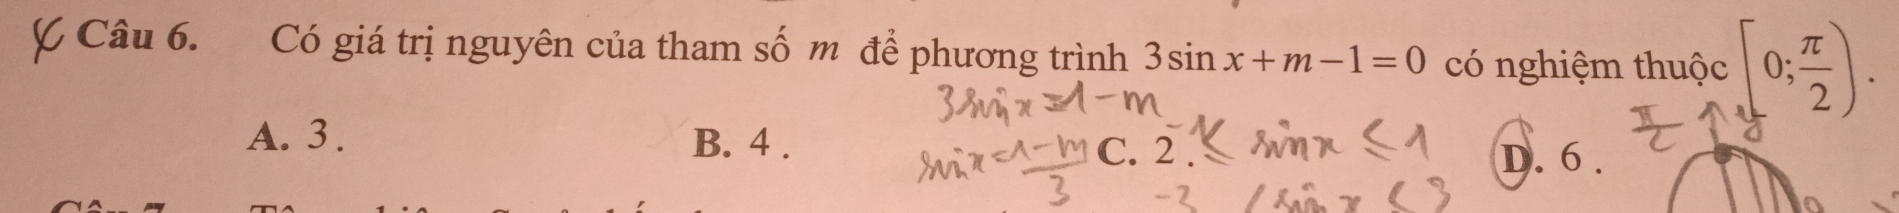 Câu 6. Có giá trị nguyên của tham số m để phương trình 3 sin x + m − 1 = 0 có nghiệm thuộc [0; π/2).
3 sin x = 1 − m
A. 3. B. 4. C. 2. D. 6.
sin x = 1 − m / 3
≤ sin x ≤ 1
π/2 y